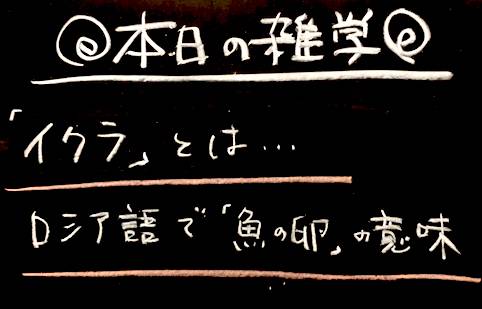 @本日の雑学@
「イクラ」とは…
ロシア語で「魚の卵」の意味